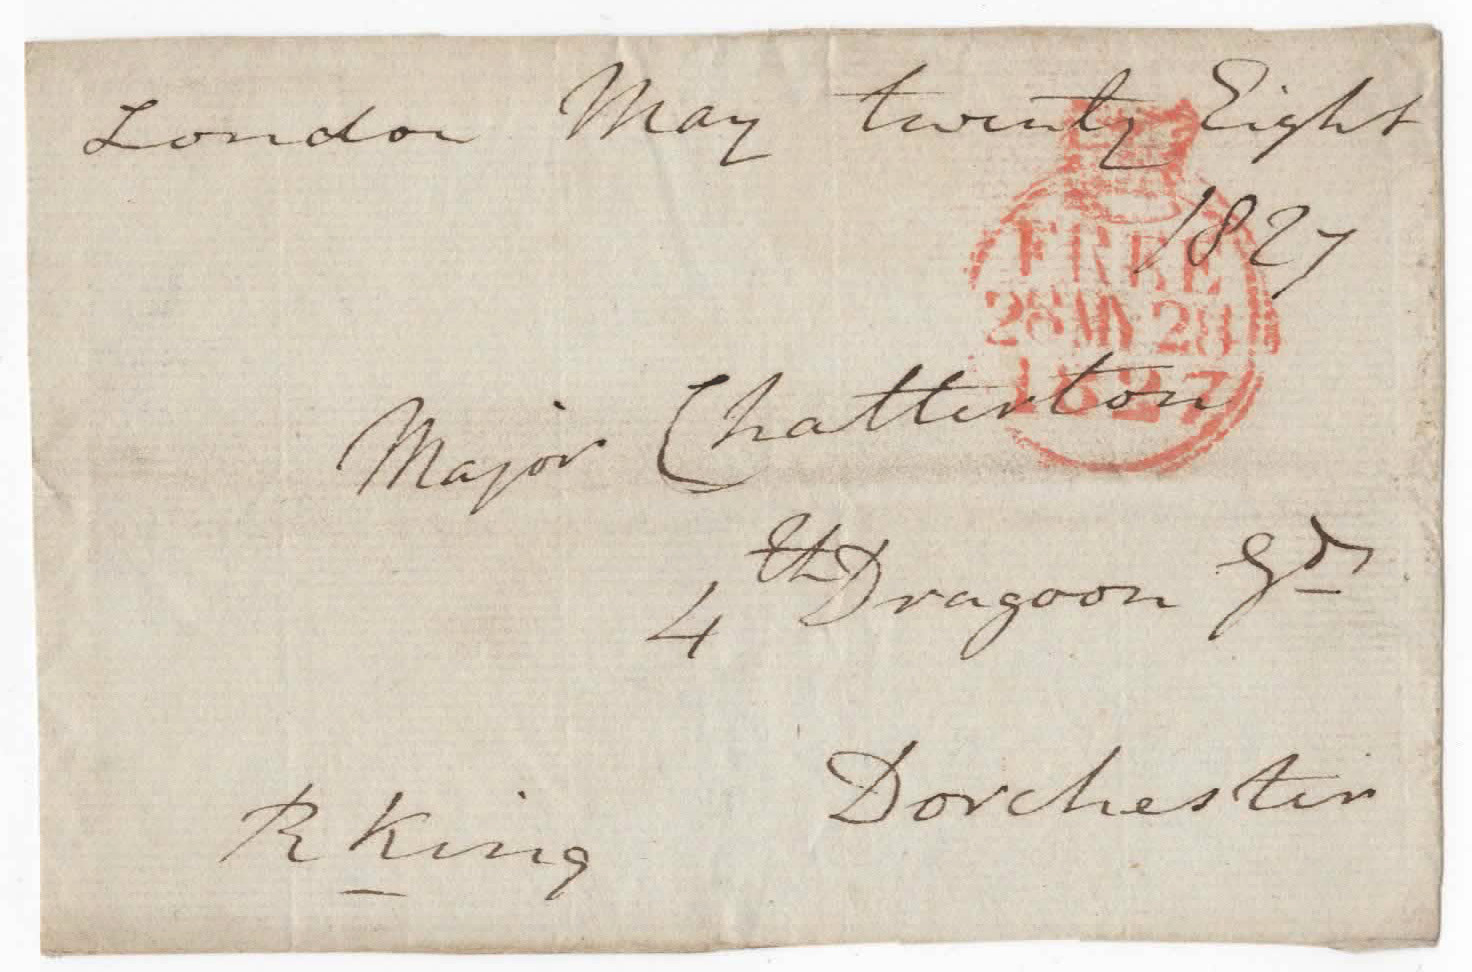 London May twenty Eight
1827
FREE
28 MY 28
1827
Major Chatterton
4th Dragoon Gds
Dorchester
R King